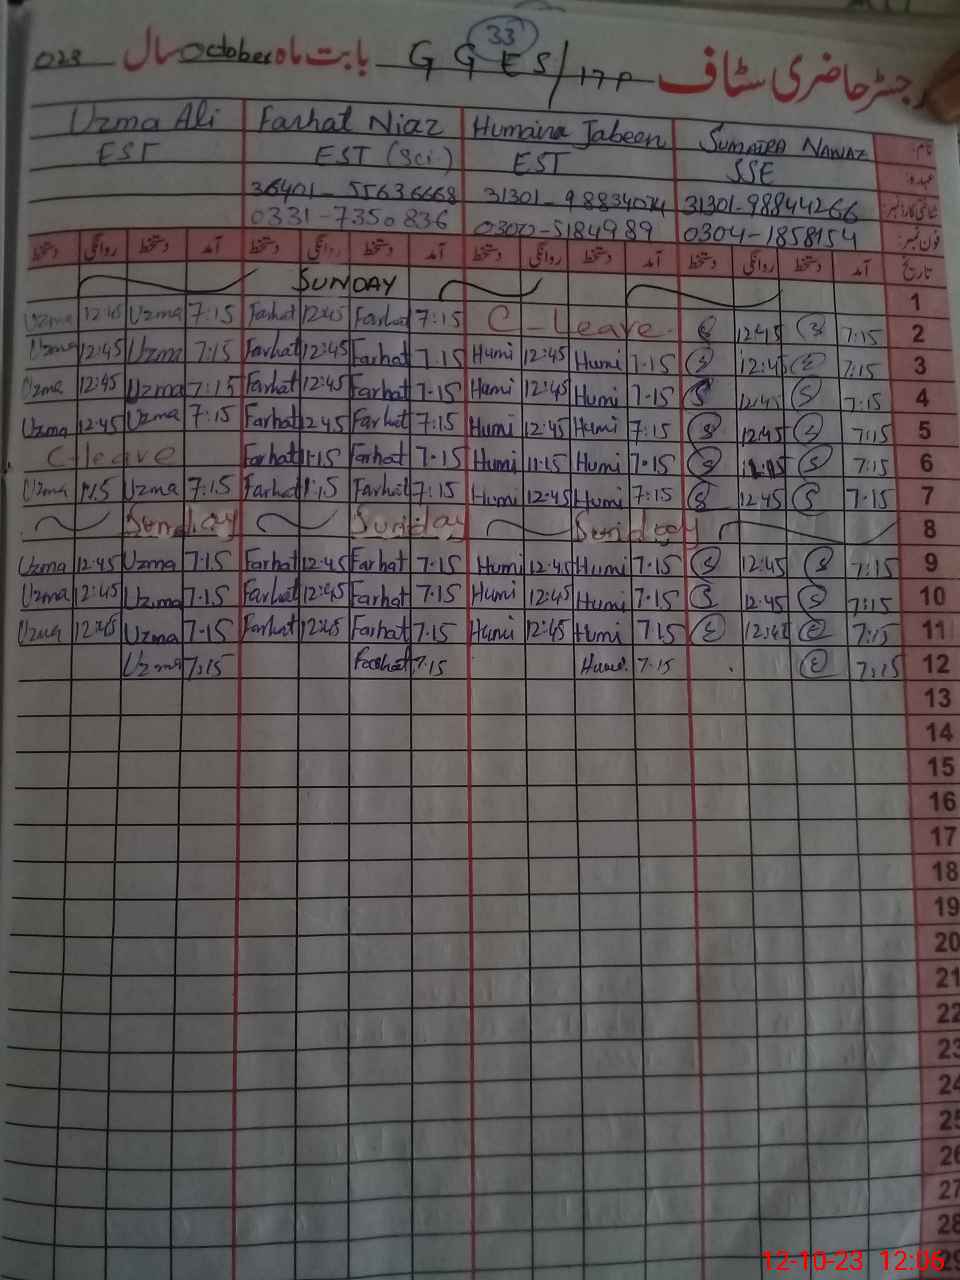 33
رجسٹر حاضری سٹاف G G E S / 17P بابت ماہ October سال 023
نام: SUMAIRA NAWAZ Humaira Jabeen Farhat Niaz Uzma Ali
عہدہ: SSE EST EST (Sci.) EST
شناختی کارڈ نمبر: 31301-98844266 31301-98834074 36401-55636668
فون نمبر: 0304-1858154 0300-5184989 0331-7350836
تاریخ آمد دستخط روانگی دستخط آمد دستخط روانگی دستخط آمد دستخط روانگی دستخط آمد دستخط روانگی دستخط
1 SUNDAY
2 7:15 12:45 C-Leave. 7:15 Farhat 12:45 Farhat 7:15 Uzma 12:45 Uzma
3 7:15 12:45 7.15 Humi 12:45 Humi 7.15 Farhat 12:45 Farhat 7:15 Uzma 12:45 Uzma
4 7:15 12:45 7.15 Humi 12:45 Humi 7.15 Farhat 12:45 Farhat 7:15 Uzma 12:45 Uzma
5 7:15 12:45 7:15 Humi 12:45 Humi 7:15 Farhat 12 45 Farhat 7:15 Uzma 12:45 Uzma
6 7:15 7.15 Humi 11:15 Humi 7.15 Farhat 11:15 Farhat C-leave
7 7.15 12:45 7:15 Humi 12:45 Humi 7:15 Farhat Farhat 7:15 Uzma Uzma
8 Sunday Sunday Sunday
9 7:15 12:45 7.15 Humi 12.45 Humi 7.15 Farhat 12.45 Farhat 7.15 Uzma 12:45 Uzma
10 7:15 12.45 7.15 Humi 12:45 Humi 7.15 Farhat 12:45 Farhat 7.15 Uzma 12:45 Uzma
11 7:15 12:45 7.15 Humi 12:45 Humi 7.15 Farhat 12:45 Farhat 7.15 Uzma 12:45 Uzma
12 7:15 7.15 Humi 7.15 Farhat 7:15 Uzma
13
14
15
16
17
18
19
20
21
22
23
24
25
26
27
28
29
12-10-23 12:06